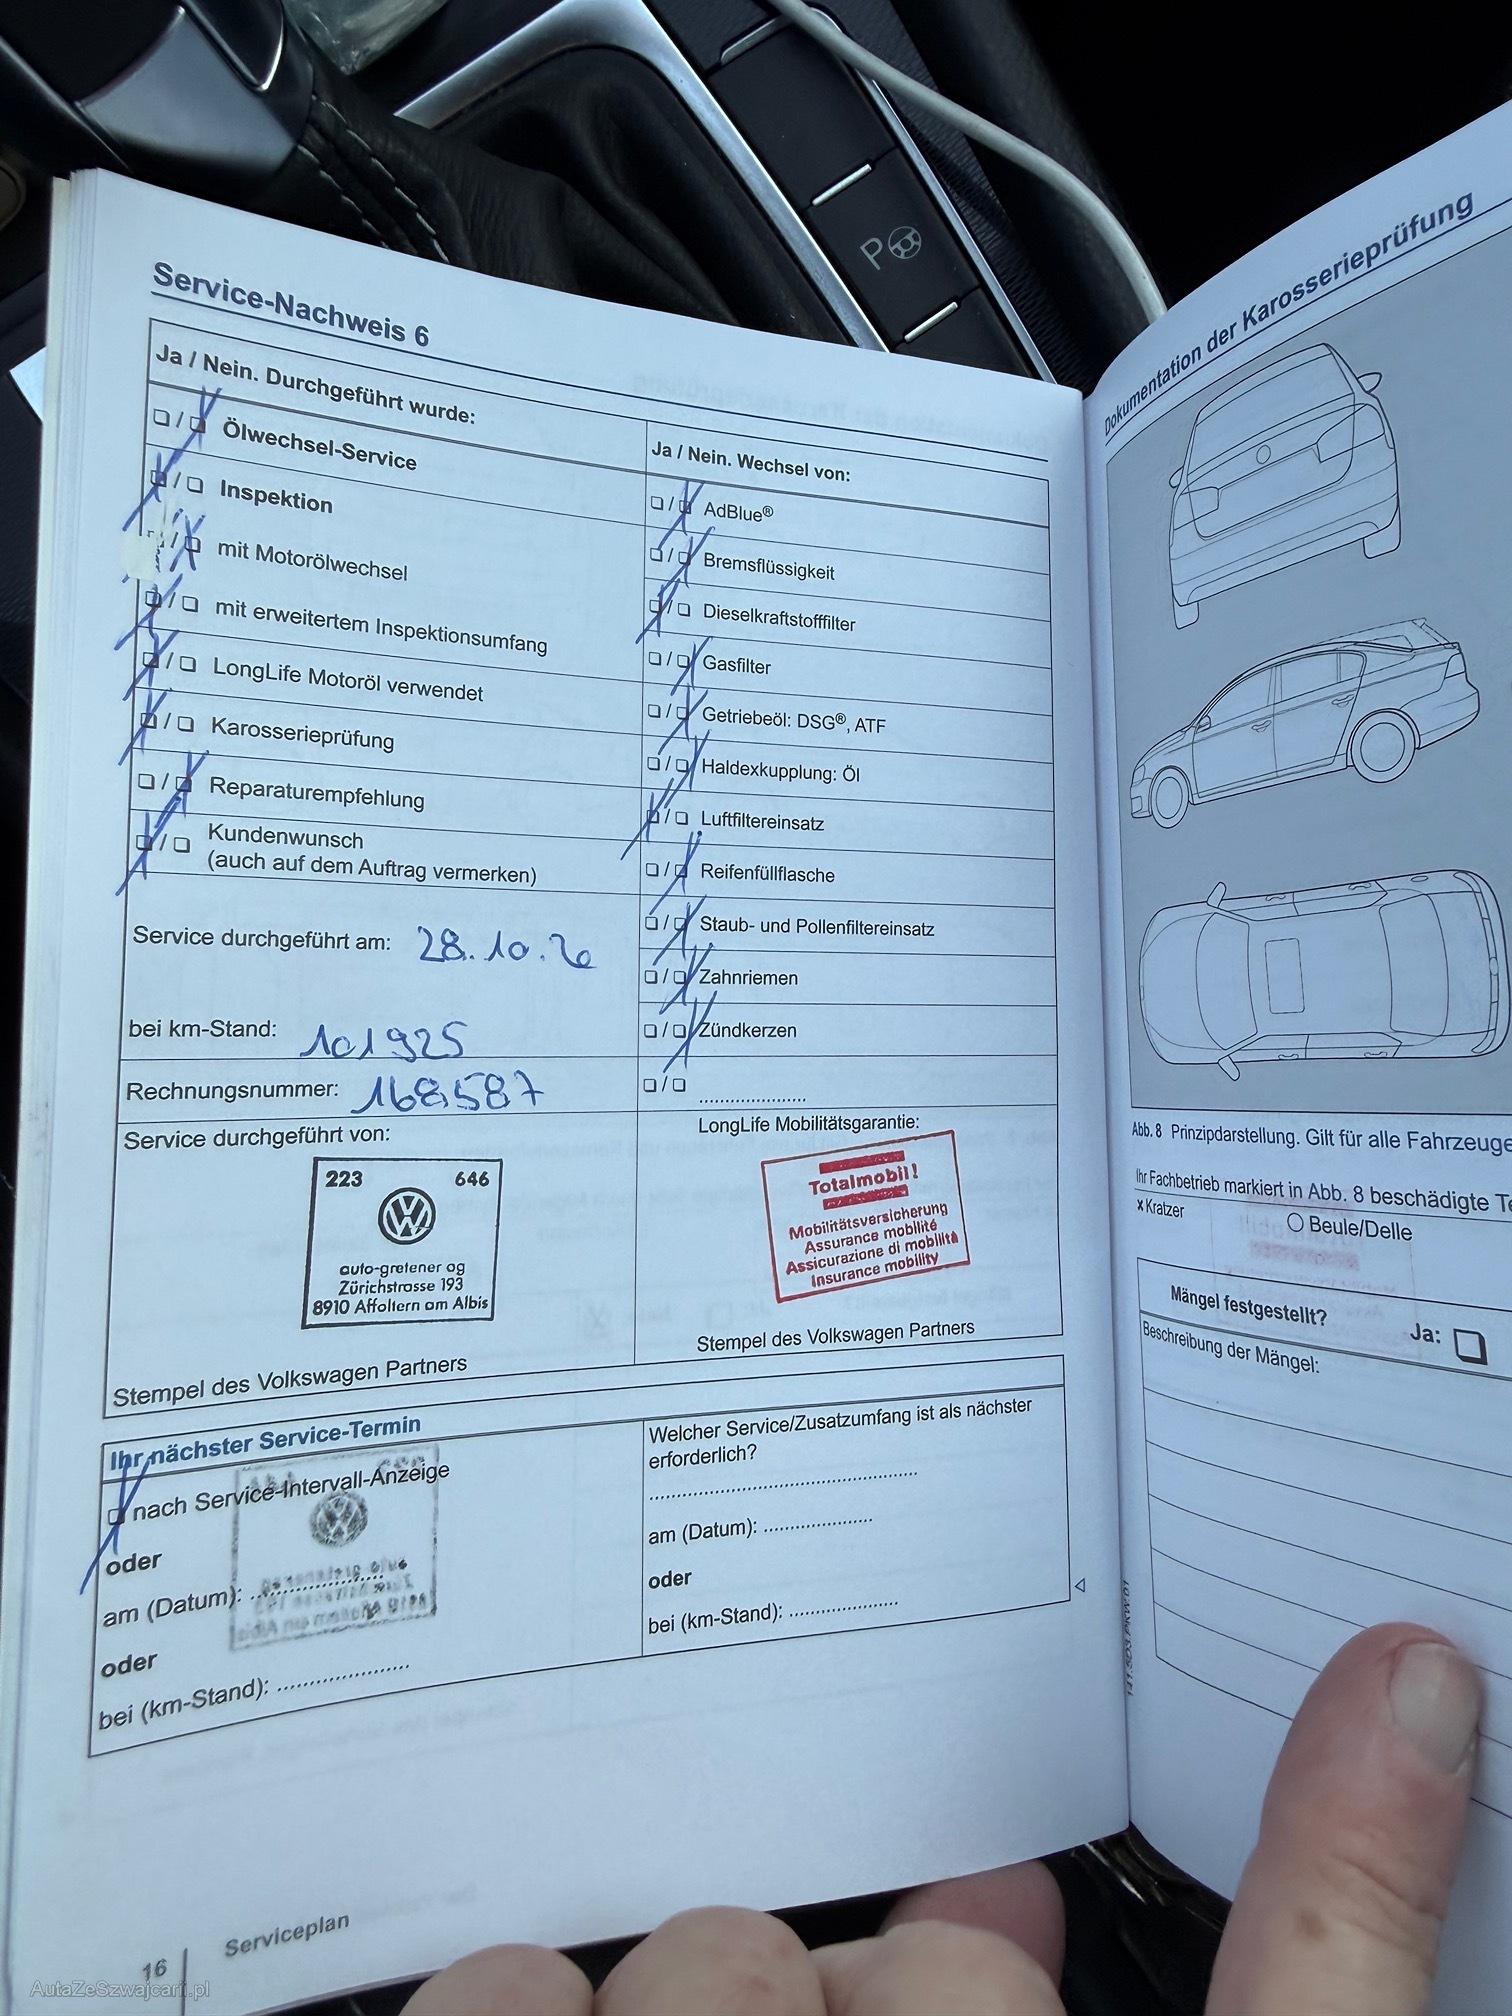 Service-Nachweis 6
Ja / Nein. Durchgeführt wurde:
Ölwechsel-Service
Inspektion
mit Motorölwechsel
mit erweitertem Inspektionsumfang
LongLife Motoröl verwendet
Karosserieprüfung
Reparaturempfehlung
Kundenwunsch
(auch auf dem Auftrag vermerken)
Service durchgeführt am: 28.10.20
bei km-Stand: 101925
Rechnungsnummer: 168587
Service durchgeführt von:
223 646
auto-gretener ag
Zürichstrasse 193
8910 Affoltern am Albis
Stempel des Volkswagen Partners
Ja / Nein. Wechsel von:
AdBlue®
Bremsflüssigkeit
Dieselkraftstofffilter
Gasfilter
Getriebeöl: DSG®, ATF
Haldexkupplung: Öl
Luftfiltereinsatz
Reifenfüllflasche
Staub- und Pollenfiltereinsatz
Zahnriemen
Zündkerzen
LongLife Mobilitätsgarantie:
Totalmobil!
Mobilitätsversicherung
Assurance mobilité
Assicurazione di mobilità
Insurance mobility
Stempel des Volkswagen Partners
Ihr nächster Service-Termin
nach Service-Intervall-Anzeige
oder
am (Datum):
oder
bei (km-Stand):
Welcher Service/Zusatzumfang ist als nächster
erforderlich?
am (Datum):
oder
bei (km-Stand):
16 Serviceplan
Dokumentation der Karosserieprüfung
Abb. 8 Prinzipdarstellung. Gilt für alle Fahrzeuge
Ihr Fachbetrieb markiert in Abb. 8 beschädigte
x Kratzer
Beule/Delle
Mängel festgestellt?
Ja:
Beschreibung der Mängel:
P
AutaZeSzwajcarii.pl